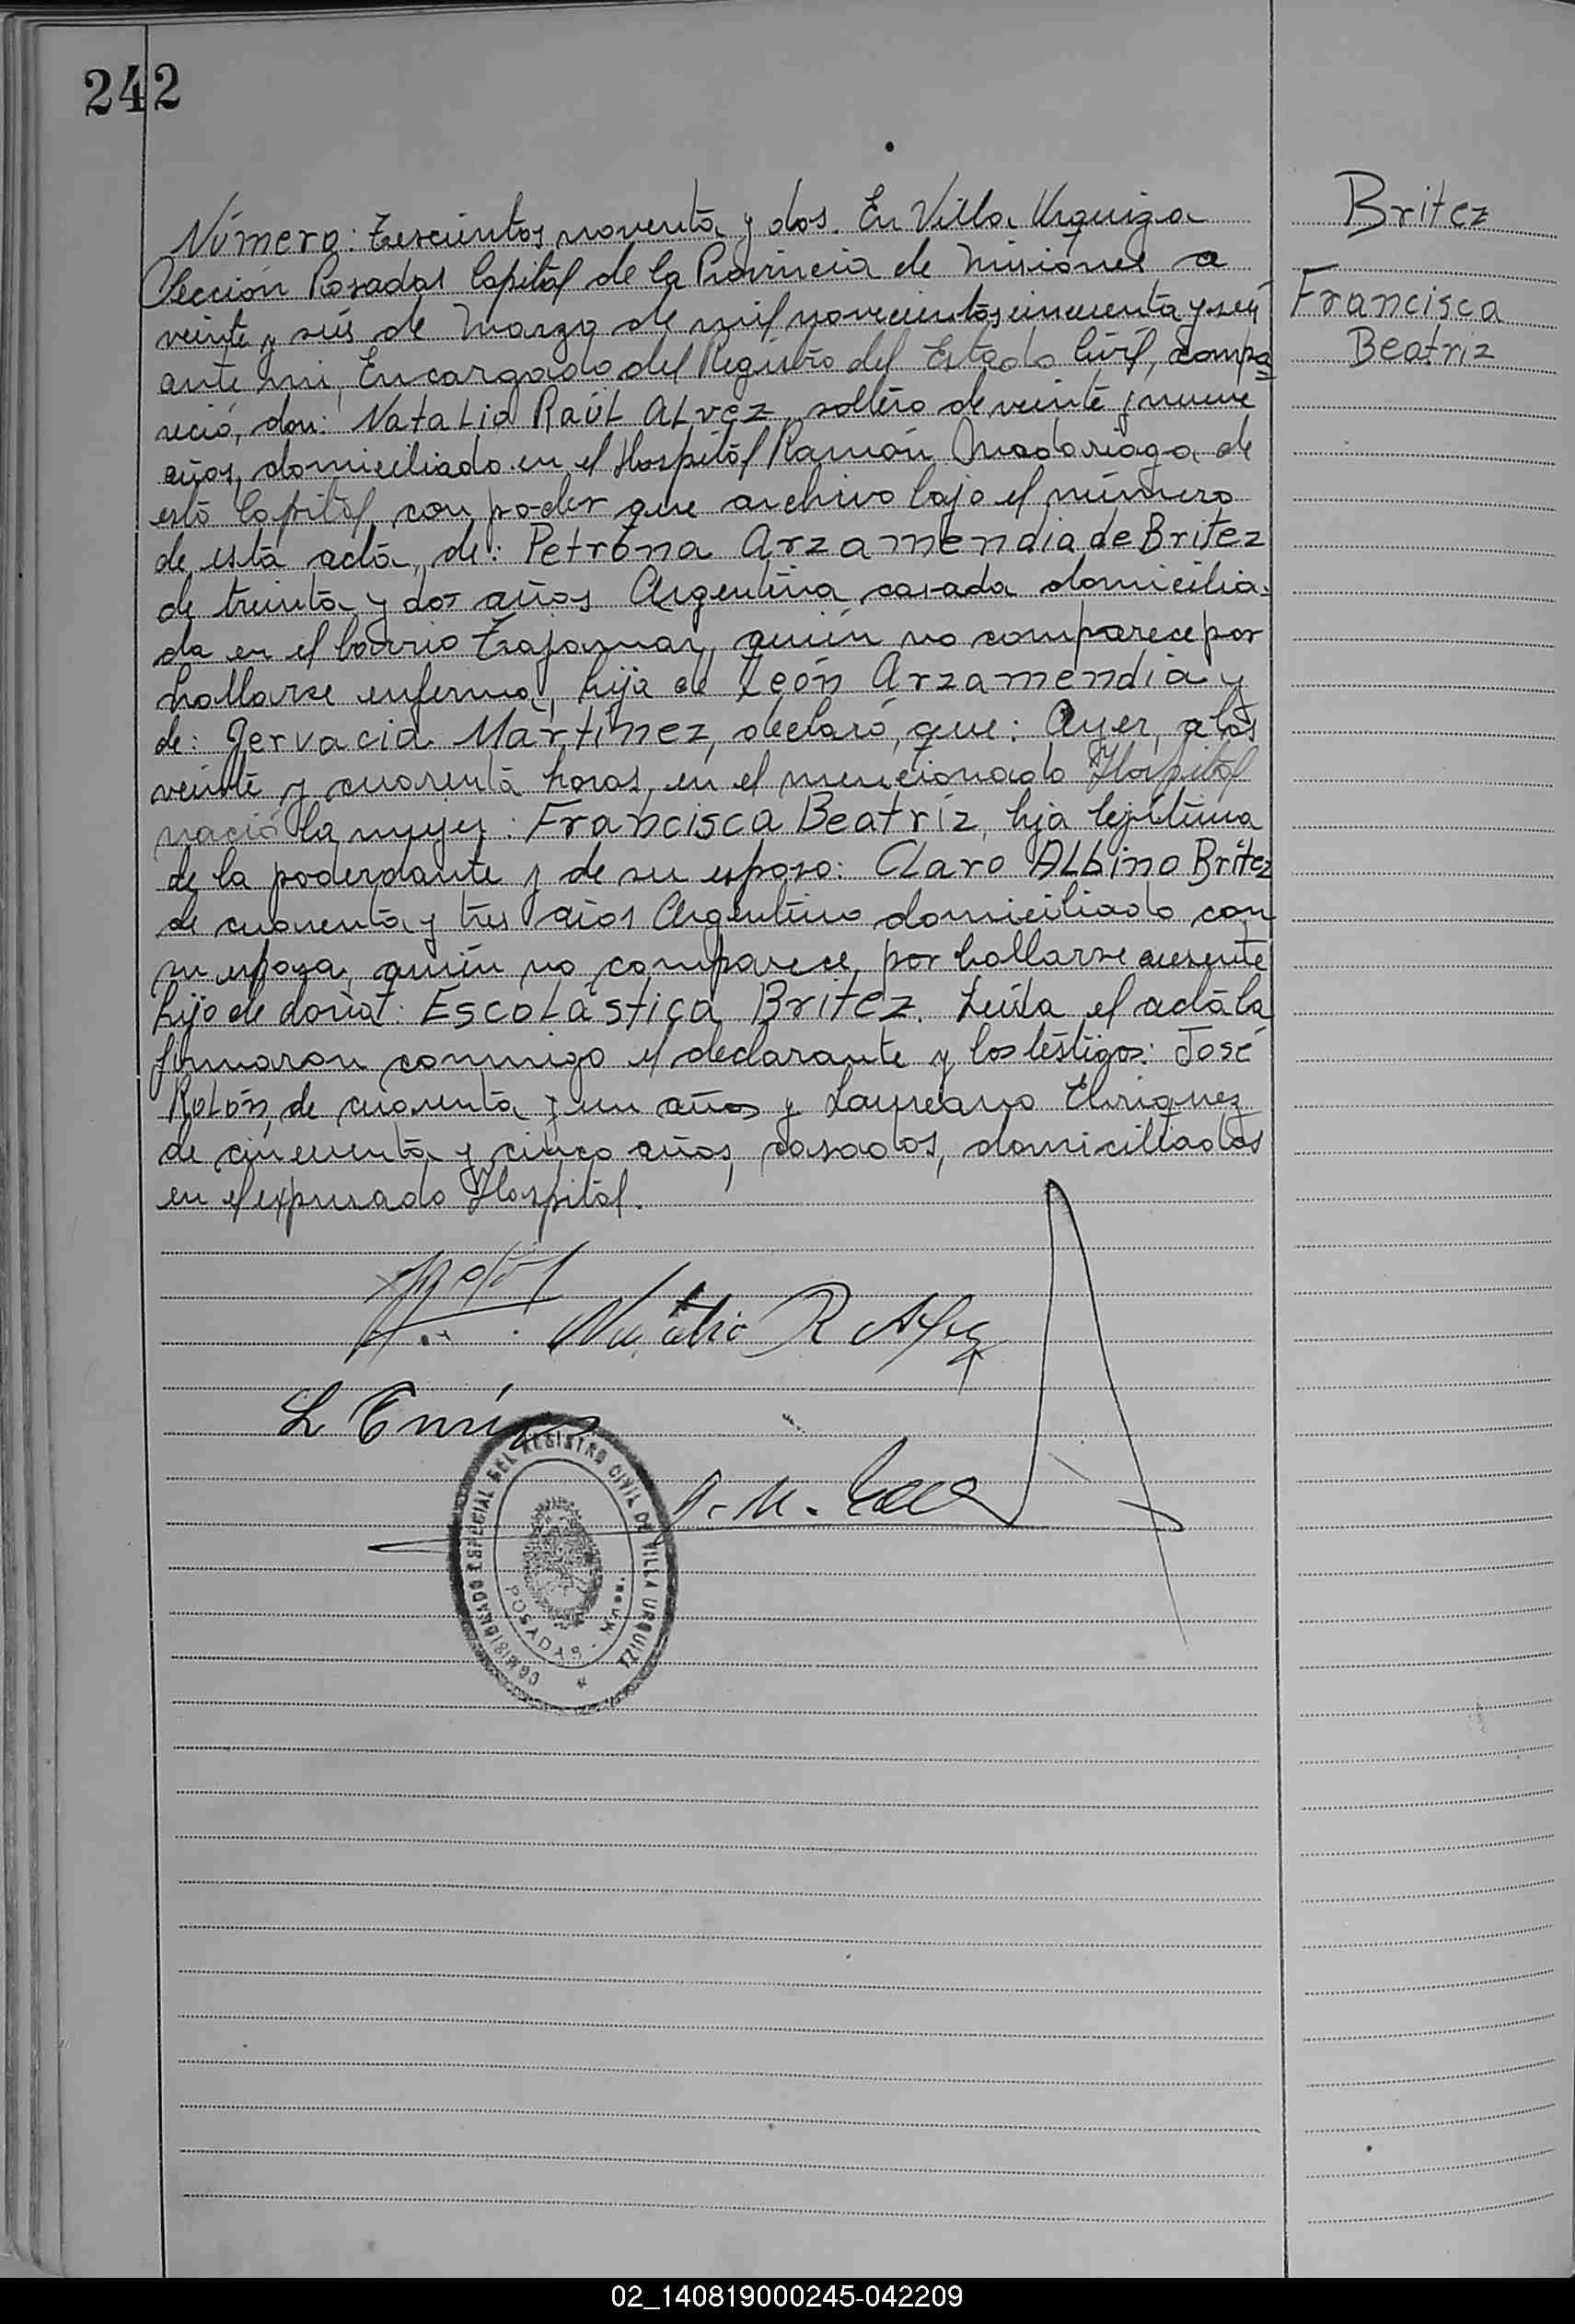 242
Número: Trescientos noventa y dos. En Villa Urquiza
Sección Posadas Capital de la Provincia de Misiones a
veinte y seis de Marzo de mil novecientos cincuenta y seis
ante mi, Encargado del Registro del Estado Civil, compa
reció, don: Natalio Raúl Alvez, soltero de veinte y nueve
años, domiciliado en el Hospital Ramón Madariaga de
esta Capital, con poder que archivo bajo el número
de esta acta, de: Petrona Arzamendia de Britez
de treinta y dos años Argentina, casada domicilia-
da en el barrio Tajamar, quién no comparece por
hallarse enferma, hija de León Arzamendia y
de: Jervacia Martínez, declaró, que: Ayer, a las
veinte y cuarenta horas, en el mencionado Hospital
nació la mujer: Francisca Beatríz, hija legítima
de la poderdante y de su esposo: Claro Albino Britez
de cuarenta y tres años Argentino domiciliado con
su esposa, quién no comparece, por hallarse ausente
hijo de doña: Escolástica Britez. Leída el acta la
firmaron conmigo el declarante y los testigos: José
Rolón, de cuarenta y un años y Laureano Enriquez
de cincuenta y cinco años, casados, domiciliados
en el expresado Hospital.
Britez
Francisca
Beatriz
Natalio R Alvez
L Enriquez
COMISIONADO ESPECIAL DEL REGISTRO CIVIL DE VILLA URQUIZA
POSADAS - Mnes.
02_140819000245-042209